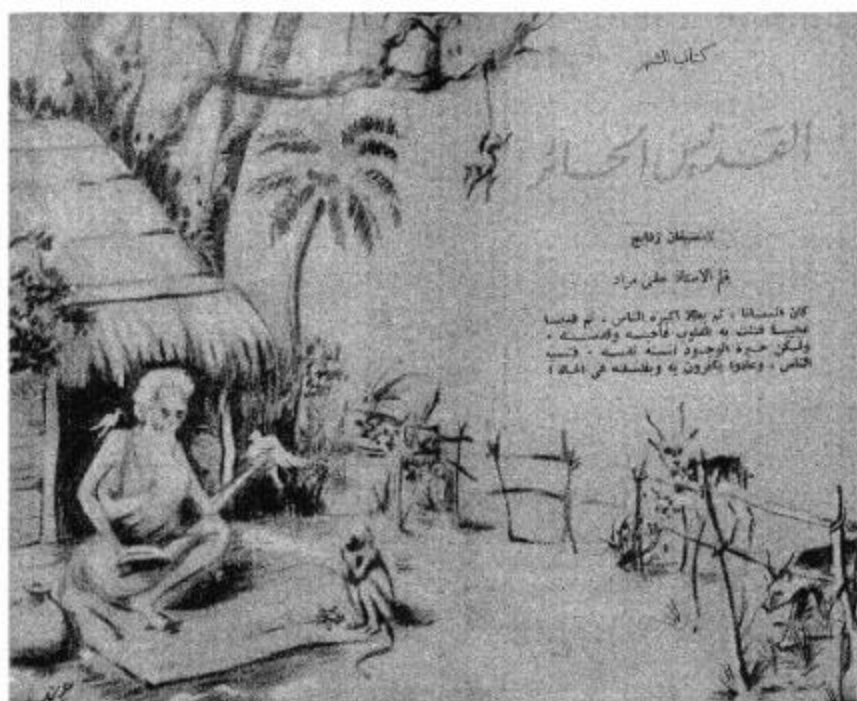 كتاب الشهر
القديس الحائر
لاستيفان زفايج
قلم الاستاذ حلمي مراد
كان انسانا ، ثم بطلا اكبره الناس ، ثم قديسا
فتنت به القلوب فأحبته وقدسته .
ولكن حيرة الوجود نفسه .
الناس ، وعادوا يكفرون به وبفلسفته في الحياة !